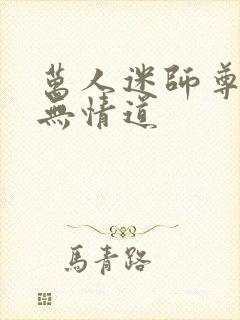 萬人迷師尊
無情道
馬青路